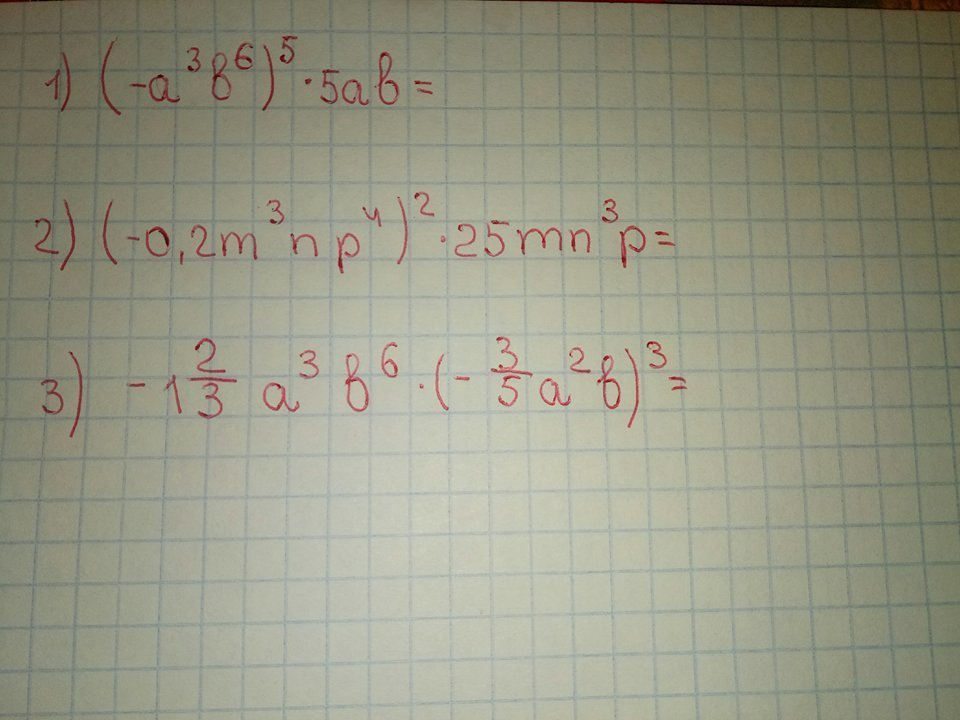 1) (-a³b⁶)⁵·5ab=
2) (-0,2m³np⁴)²·25mn³p=
3) -1 2/3 a³b⁶·(-3/5 a²b)³=